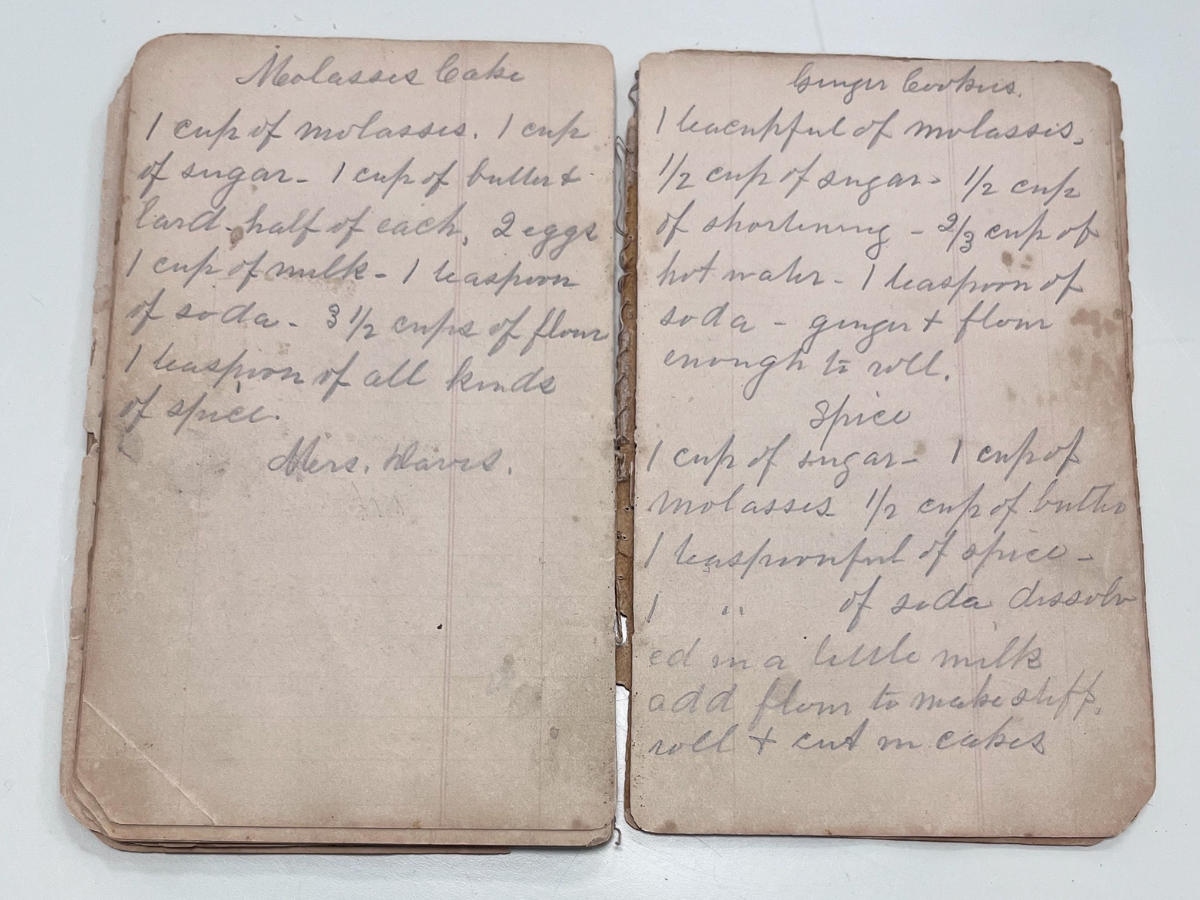 Molasses Cake
1 cup of molasses. 1 cup
of sugar - 1 cup of butter &
lard - half of each, 2 eggs
1 cup of milk - 1 teaspoon
of soda - 3 1/2 cups of flour
1 teaspoon of all kinds
of spice.
Mrs. Davis.
Ginger Cookies.
1 teacupful of molasses,
1/2 cup of sugar - 1/2 cup
of shortening - 2/3 cup of
hot water - 1 teaspoon of
soda - ginger + flour
enough to roll.
Spice
1 cup of sugar - 1 cup of
molasses 1/2 cup of butter
1 teaspoonful of spice -
1 " of soda dissolv
ed in a little milk
add flour to make stiff,
roll + cut in cakes